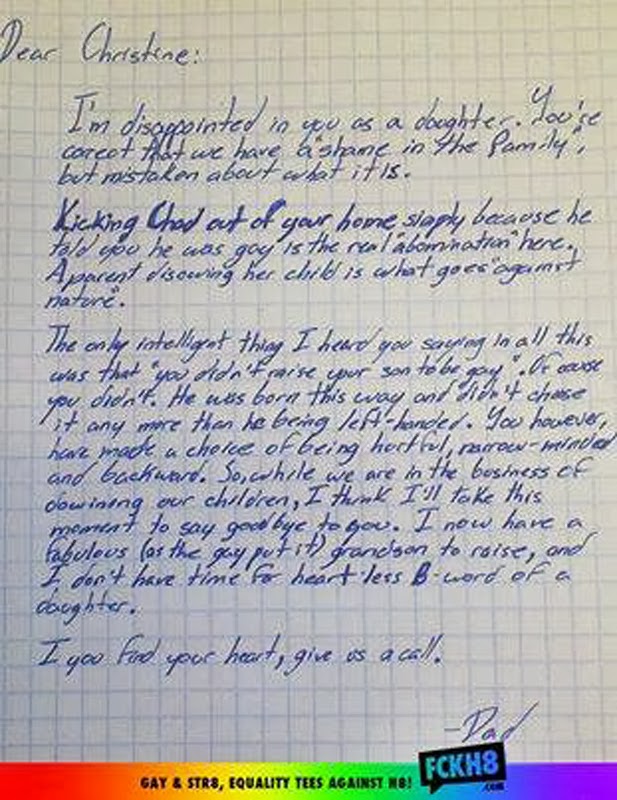 Dear Christine:
I'm disappointed in you as a daughter. You're
corect that we have a "shame in the family",
but mistaken about what it is.
Kicking Chad out of your home simply because he
told you he was gay is the real "abomination" here.
A parent disowing her child is what goes "against
nature".
The only intelligent thing I heard you saying in all this
was that "you didn't raise your son to be gay". Of couse
you didn't. He was born this way and didn't choose
it any more than he being left-handed. You however,
have made a choice of being hurtful, narrow-minded
and backward. So, while we are in the business of
downing our children, I think I'll take this
moment to say goodbye to you. I now have a
fabulous (as the gay put it) grandson to raise, and
I don't have time for heart-less B-word of a
daughter.
I you find your heart, give us a call.
-Dad
GAY & STR8, EQUALITY TEES AGAINST H8!
FCKH8
.com